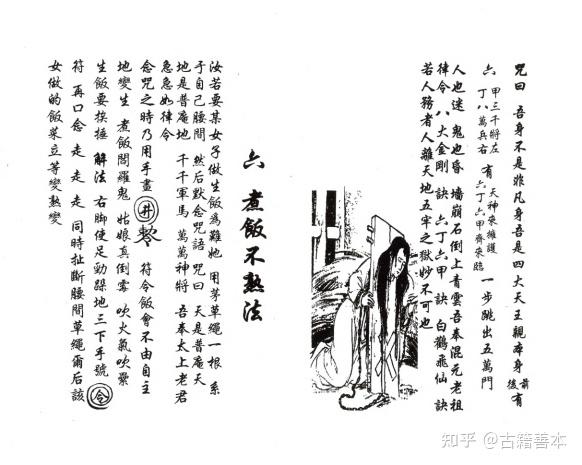 咒曰 吾身不是非凡身吾是四大天王親本身 前後有
六 甲三千將左 丁八萬兵右 有 天神來擁護 六丁六甲齊來臨 一步跳出五萬門
人也迷 鬼也昏 墻崩石倒上青雲吾奉混元老祖
律令 八大金剛 訣 六丁六甲 訣 白鶴飛仙 訣
若人務者人離天地五牢之獄妙不可也
六 煮飯不熟法
汝若要某女子做生飯為難她 用茅草繩一根 系
于自己腰間 然后默念咒語 咒曰 天是普庵天
地是普庵地 千千軍馬 萬萬神將 吾奉太上老君
急急如律令
念咒之時乃用手畫 井 符令飯會不由自主
地變生 煮飯閻羅鬼 姑娘真倒霉 吹火氣吹纍
生飯要挨捶 解法 右脚使足勁跺地三下手號 令
符 再口念 走 走 走 同時扯斷腰間草繩爾后該
女做的飯菜立等變熟變
知乎 @古籍善本